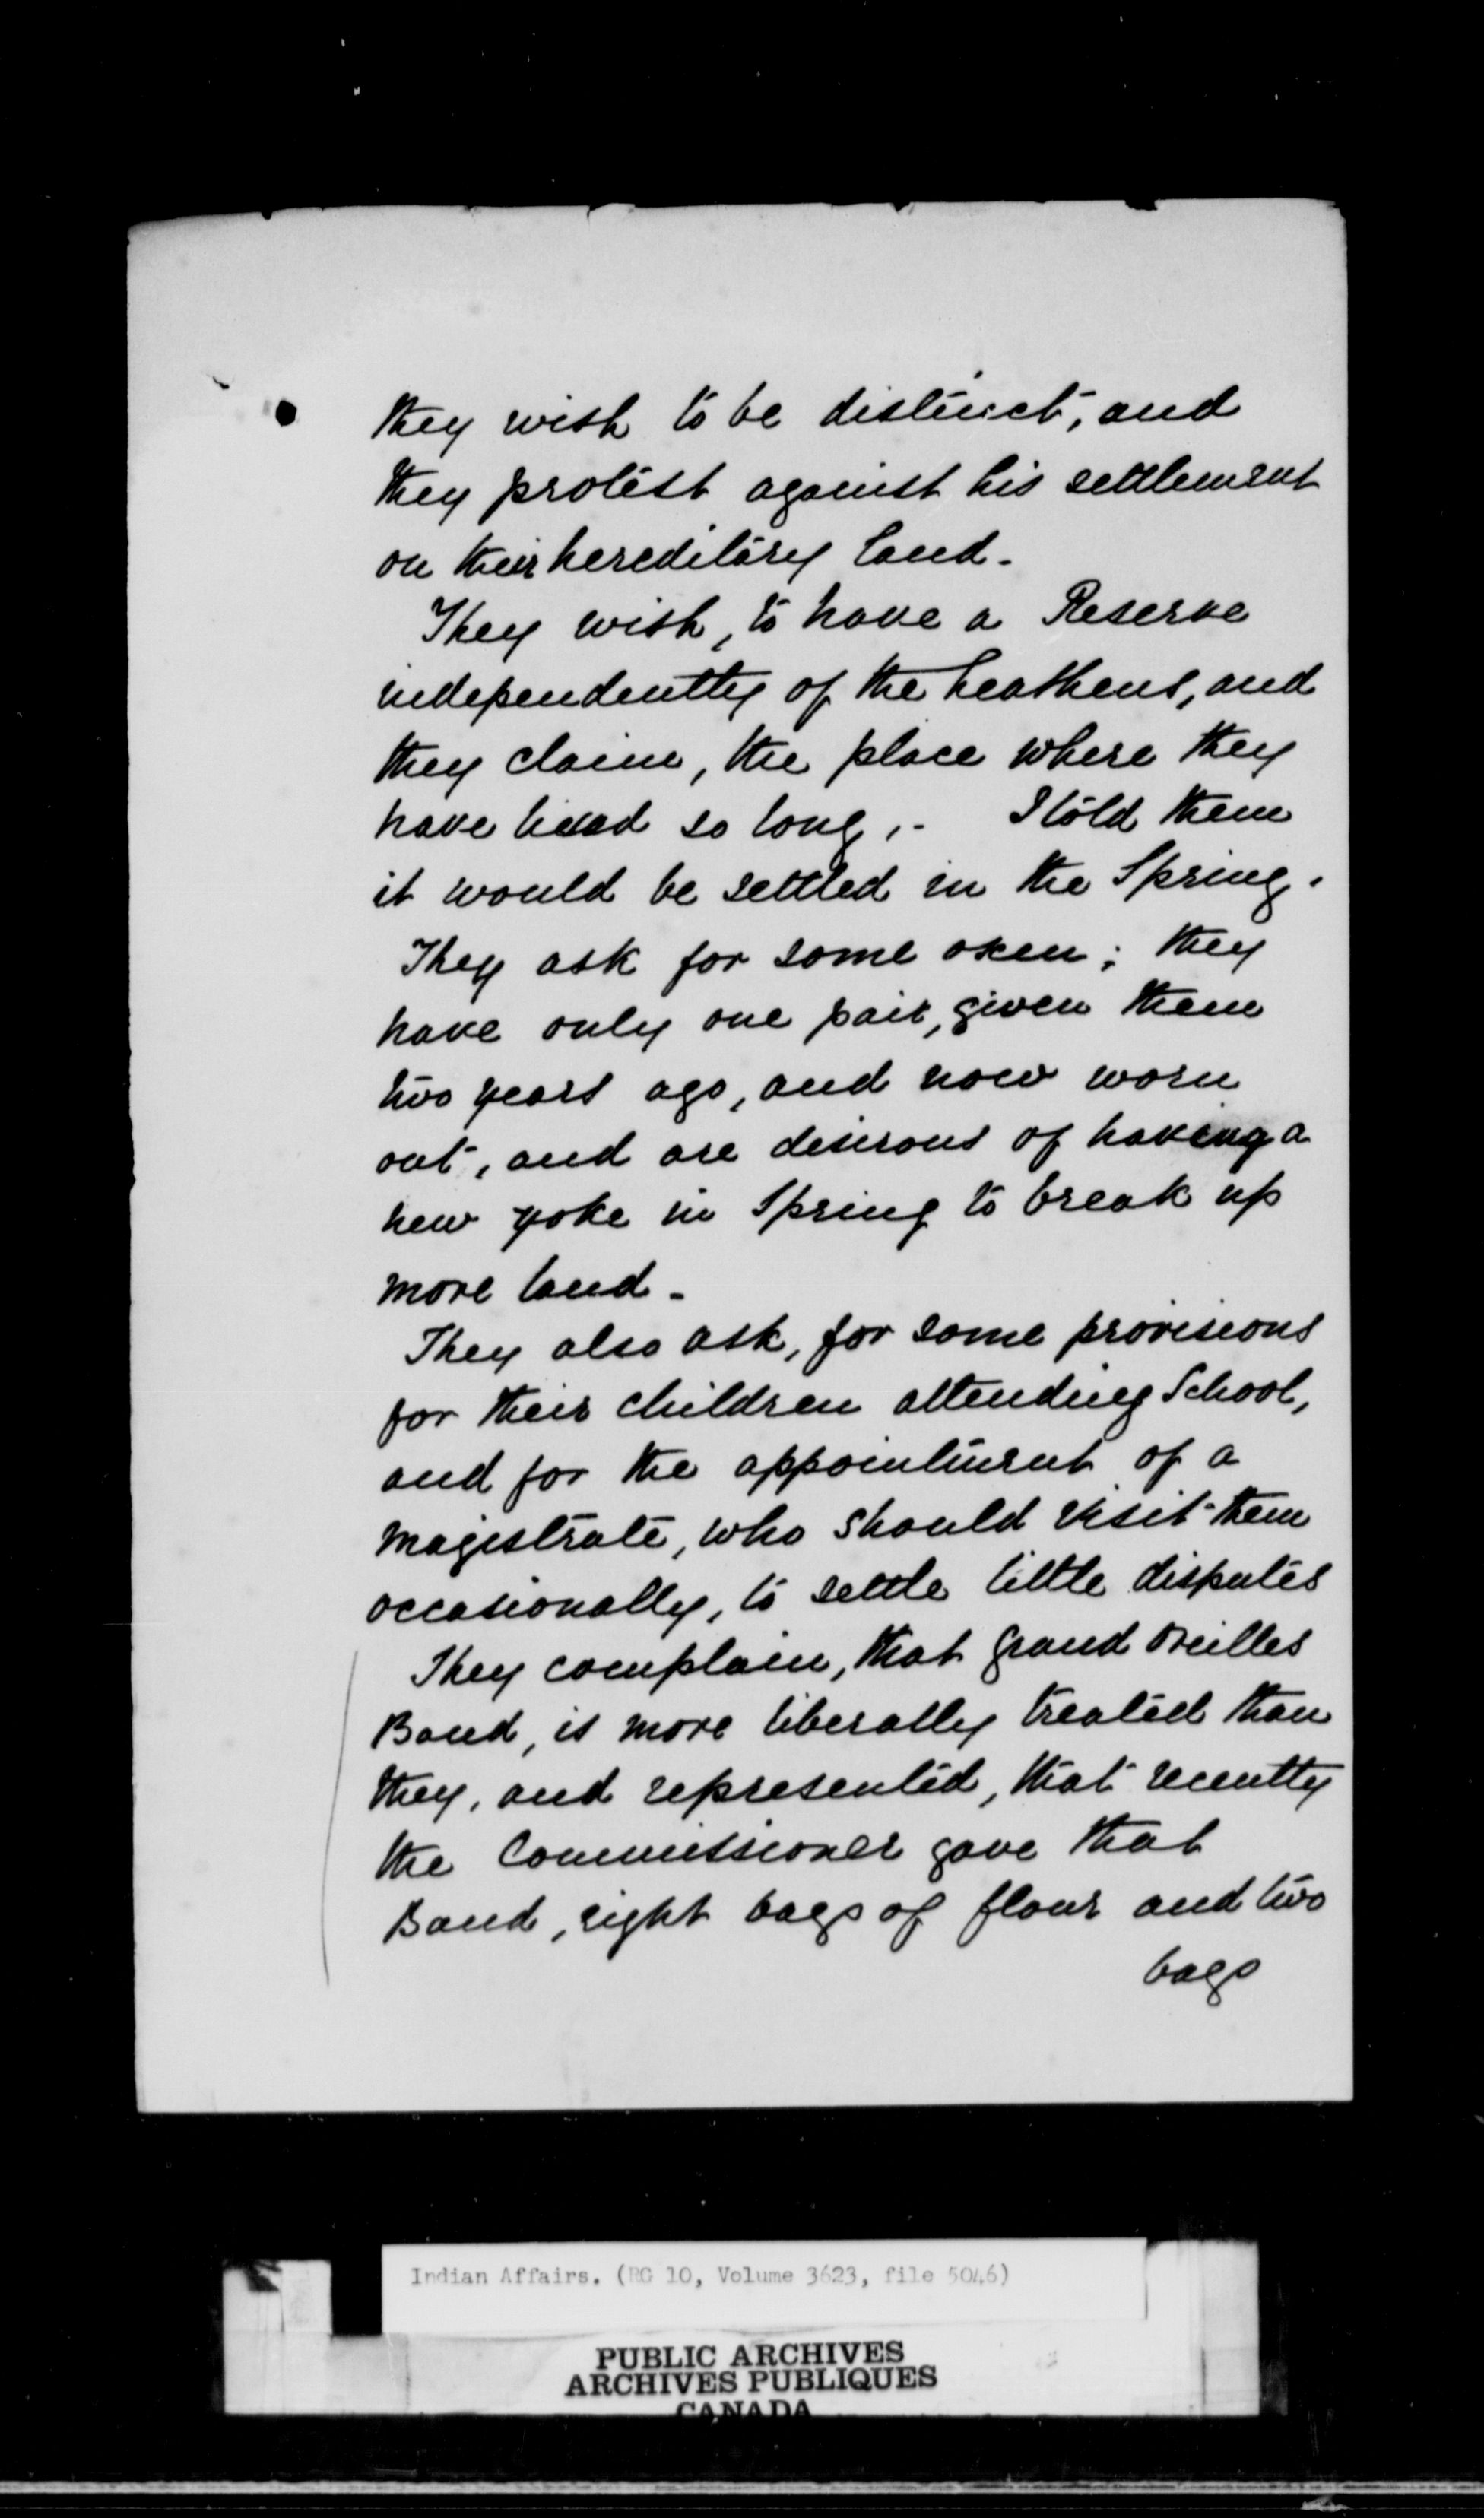 they wish to be distinct, and
they protest against his settlement
on their hereditary land.
They wish, to have a Reserve
independently of the heathens, and
they claim, the place where they
have lived so long,. I told them
it would be settled in the Spring.
They ask for some oxen; they
have only one pair, given them
two years ago, and now worn
out, and are desirous of having a
new yoke in Spring to break up
more land.
They also ask, for some provisions
for their children attending School,
and for the appointment of a
magistrate, who should visit them
occasionally, to settle little disputes
They complain, that Grand Oreilles
Band, is more liberally treated than
they, and represented, that recently
the Commissioner gave that
Band, eight bags of flour and two
bags
Indian Affairs. (RG 10, Volume 3623, file 5046)
PUBLIC ARCHIVES
ARCHIVES PUBLIQUES
CANADA